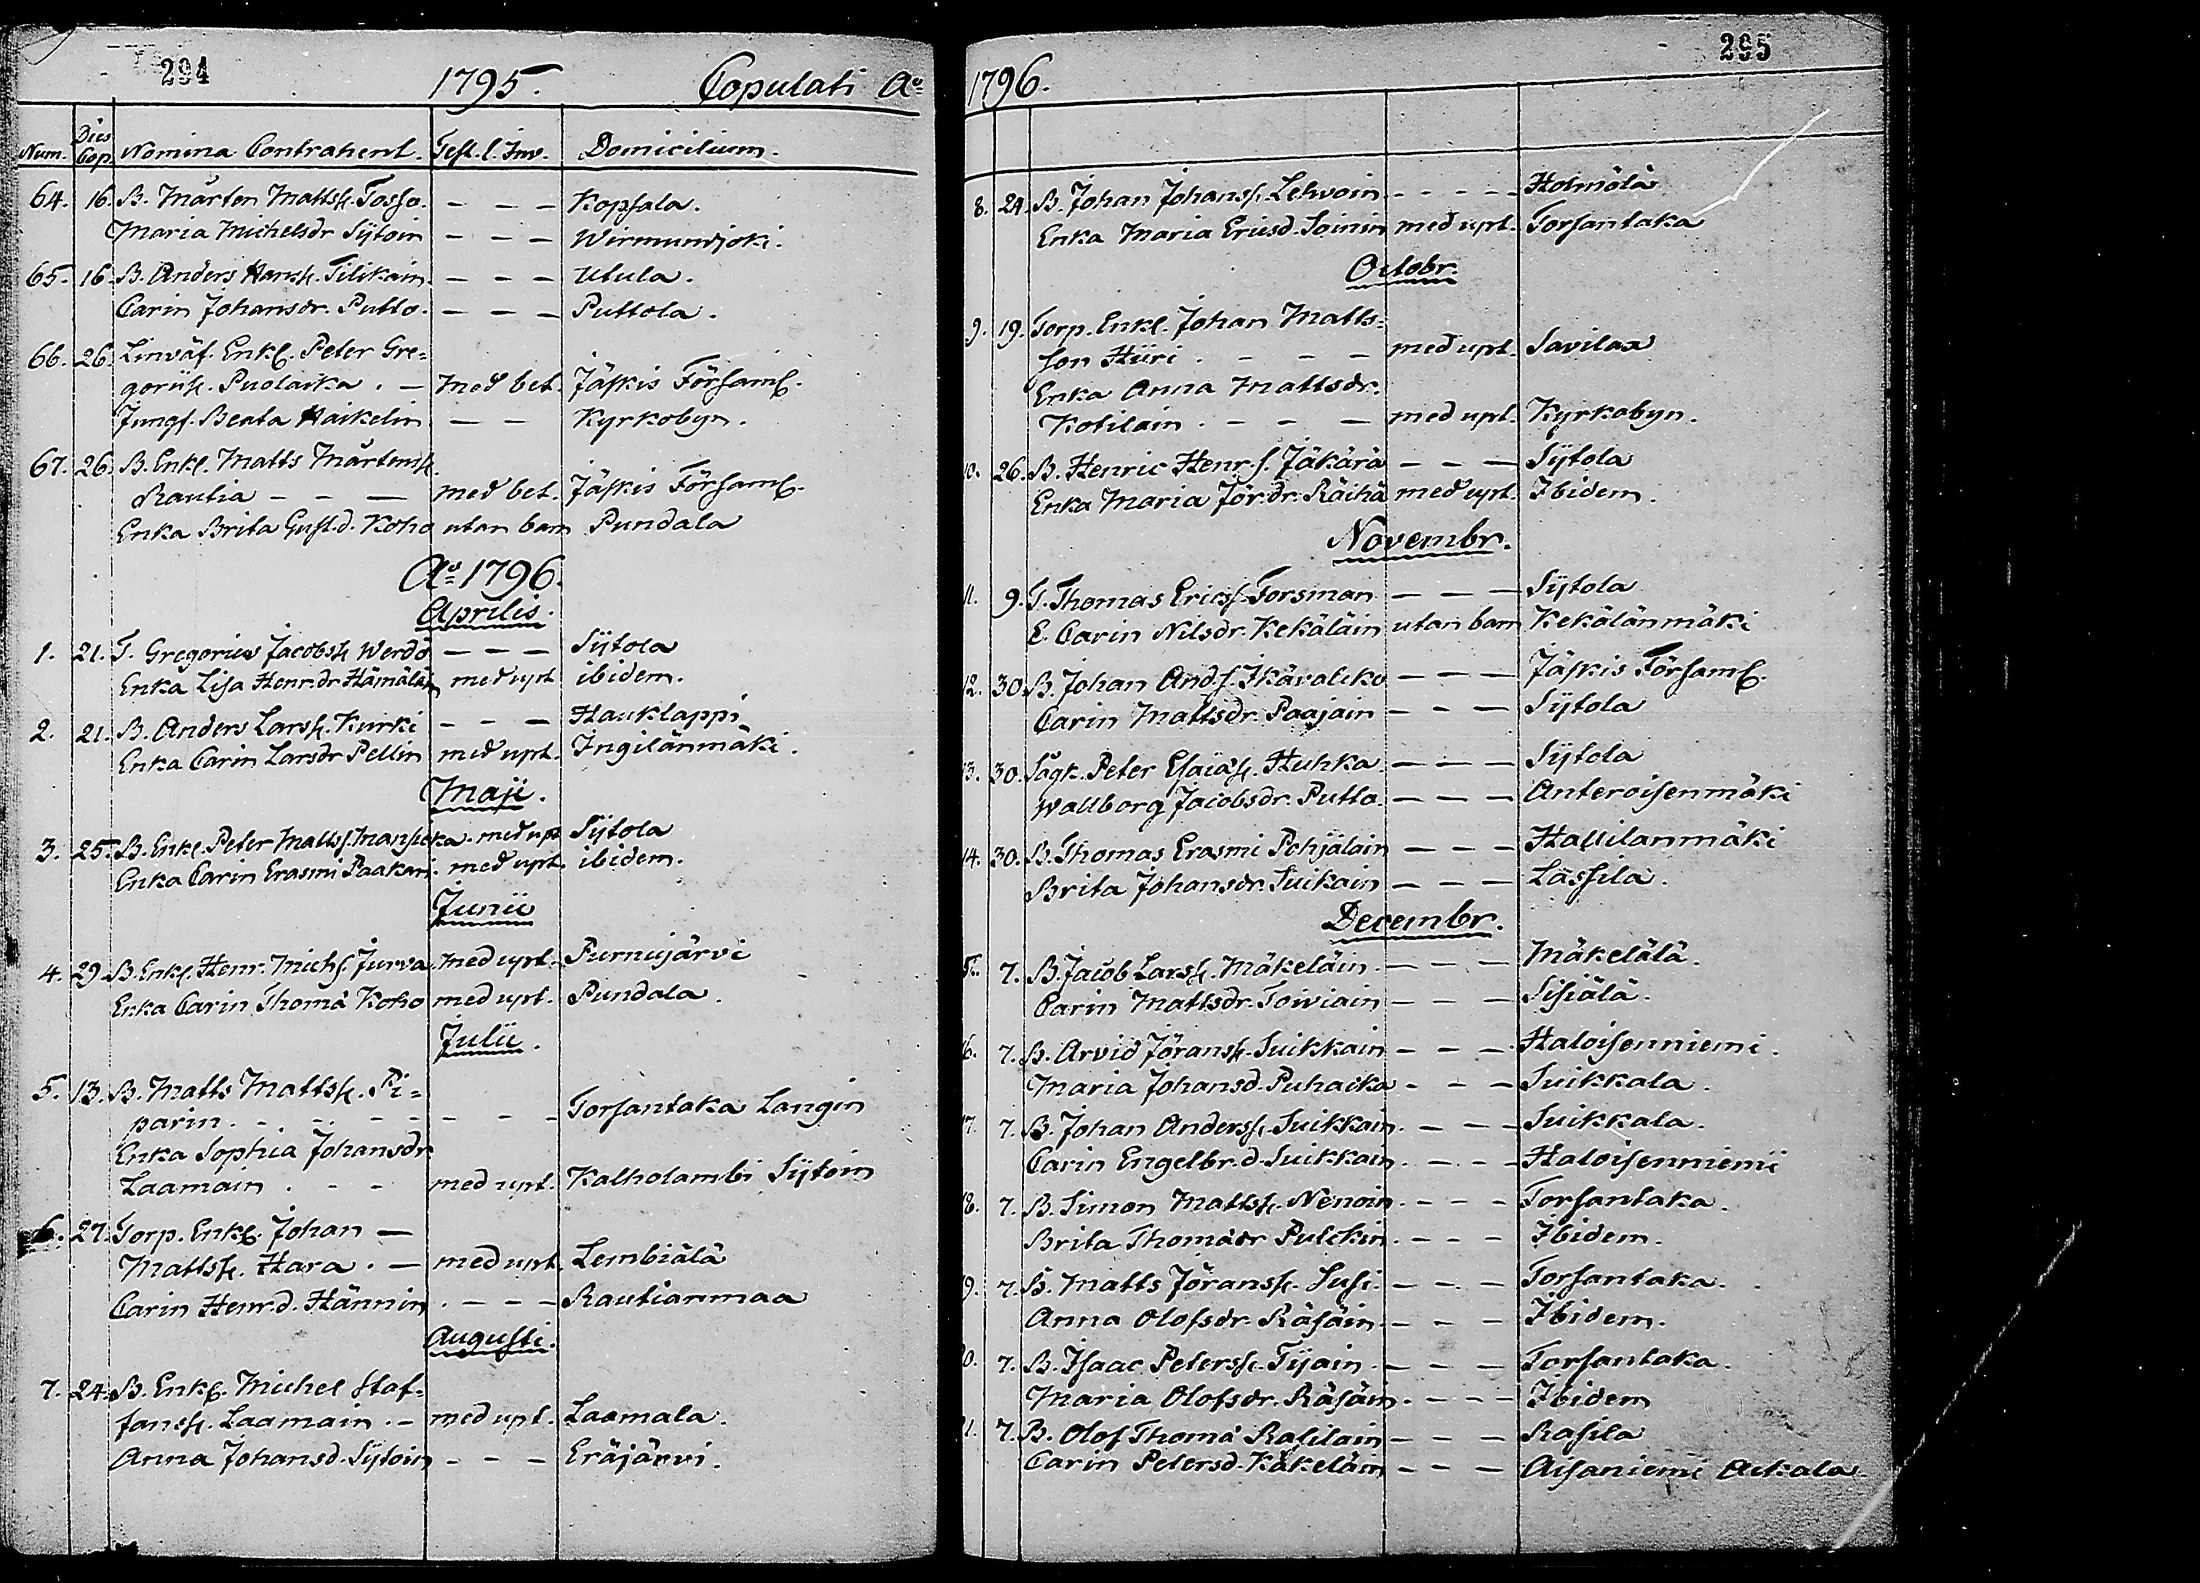 294
1795. Copulati Ao
Num. Dies Cop. Nomina Contrahent. Test. l. Inv. Domicilium.
64. 16. B. Mårten Mattss. Tosso. - - - Kopsala.
Maria Michelsdr Sÿtoin - - - Wirmundjoki.
65. 16. B. Anders Hanss. Tilikain. - - - Utula.
Carin Johansdr. Putto. - - - Puttola.
66. 26. Linväf. Enkl. Peter Gre=
goriiss. Puolaika. - med bet. Jäskis Församl.
Jungf. Beata Haikelin - - Kyrkobyn.
67. 26. B. Enkl. Matts Mårtenss.
Rautia - - - med bet. Jäskis Församl.
Enka Brita Gust.d. Koho utan barn Pundala
Ao 1796.
Aprilis.
1. 21. T. Gregorius Jacobss. Werdo - - - Sÿtola
Enka Lisa Henr.dr Hämäläin med upt ibidem.
2. 21. B. Anders Larss. Kurki - - - Hauklappi
Enka Carin Larsdr Pellin med upt. Ingilänmäki.
Maji.
3. 25. B. Enkl. Peter Matts s. Mansikka. med upt Sÿtola
Enka Carin Erasmi Paakari. med upt. ibidem.
Junii
4. 29. B. Enkl. Henr. Mich s. Jurva. med upt. Purnujärvi
Enka Carin Thomæ Koho med upt. Pundala.
Julii.
5. 13. B. Matts Mattss. Pi=
parin. - - - - - - Torsantaka Langin
Enka Sophia Johansdr
Laamain. - - med upt. Kalholambi Sÿtoin
6. 27. Torp. Enkl. Johan -
Mattss. Hara. - med upt. Lembiälä
Carin Henr.d. Hännin. - - - Rautianmaa
Augusti.
7. 24. B. Enkl. Michel Staf=
fanss. Laamain. - med upt. Laamala.
Anna Johansd. Sÿtoin - - - Eräjärvi.
295
1796.
8. 24. B. Johan Johanss. Lehvoin - - - - - Hoimölä
Enka Maria Ericsd. Soinin med upt. Torsantaka
Octobr.
9. 19. Torp. Enkl. Johan Matts=
son Hiiri. - - - med upt. Savilax
Enka Anna Mattsdr.
Kotilain. - - - med upt. Kyrkobyn.
10. 26. B. Henric Henr. s. Jäkärä - - - Sÿtola
Enka Maria Jör.dr. Räihä med upt. Ibidem.
Novembr.
11. 9. T. Thomas Erics s. Torsman - - - Sÿtola
E. Carin Nilsdr. Kekäläin utan barn Kekälänmäki
12. 30. B. Johan And. s. Ikävalko - - - Jäskis Församl.
Carin Mattsdr. Paajain - - - Sÿtola
13. 30. Sågk. Peter Esaiæs. Huhka. - - - Sÿtola
Wallborg Jacobsdr. Putto. - - - Anteroisenmäki
14. 30. B. Thomas Erasmi Pohjalain - - - Hallilanmäki
Brita Johansdr. Suikain - - - Lässila.
Decembr.
5. 7. B. Jacob Larss. Mäkeläin. - - - Mäkelälä.
Carin Mattsdr. Toiviain - - - Sisiälä.
6. 7. B. Arvid Jöranss. Suikkain - - - Haloisenniemi.
Maria Johansd. Puhakka - - - Suikkala.
17. 7. B. Johan Anderss. Suikkain. - - - Suikkala.
Carin Engelbr.d. Suikkain. - - - Haloisenniemi
18. 7. B. Simon Mattss. Nenoin. - - - Torsantaka.
Brita Thomædr Pulckin. - - - Ibidem.
9. 7. B. Matts Jöranss. Susi. - - - Torsantaka.
Anna Olofsdr. Räsäin. - - - Ibidem.
20. 7. B. Isaac Peterss. Tÿain. - - - Torsantaka.
Maria Olofsdr. Räsäin. - - - Ibidem
21. 7. B. Olof Thomæ Rasilain - - - Rasila
Carin Petersd. Käkeläin - - - Aisaniemi Ackala